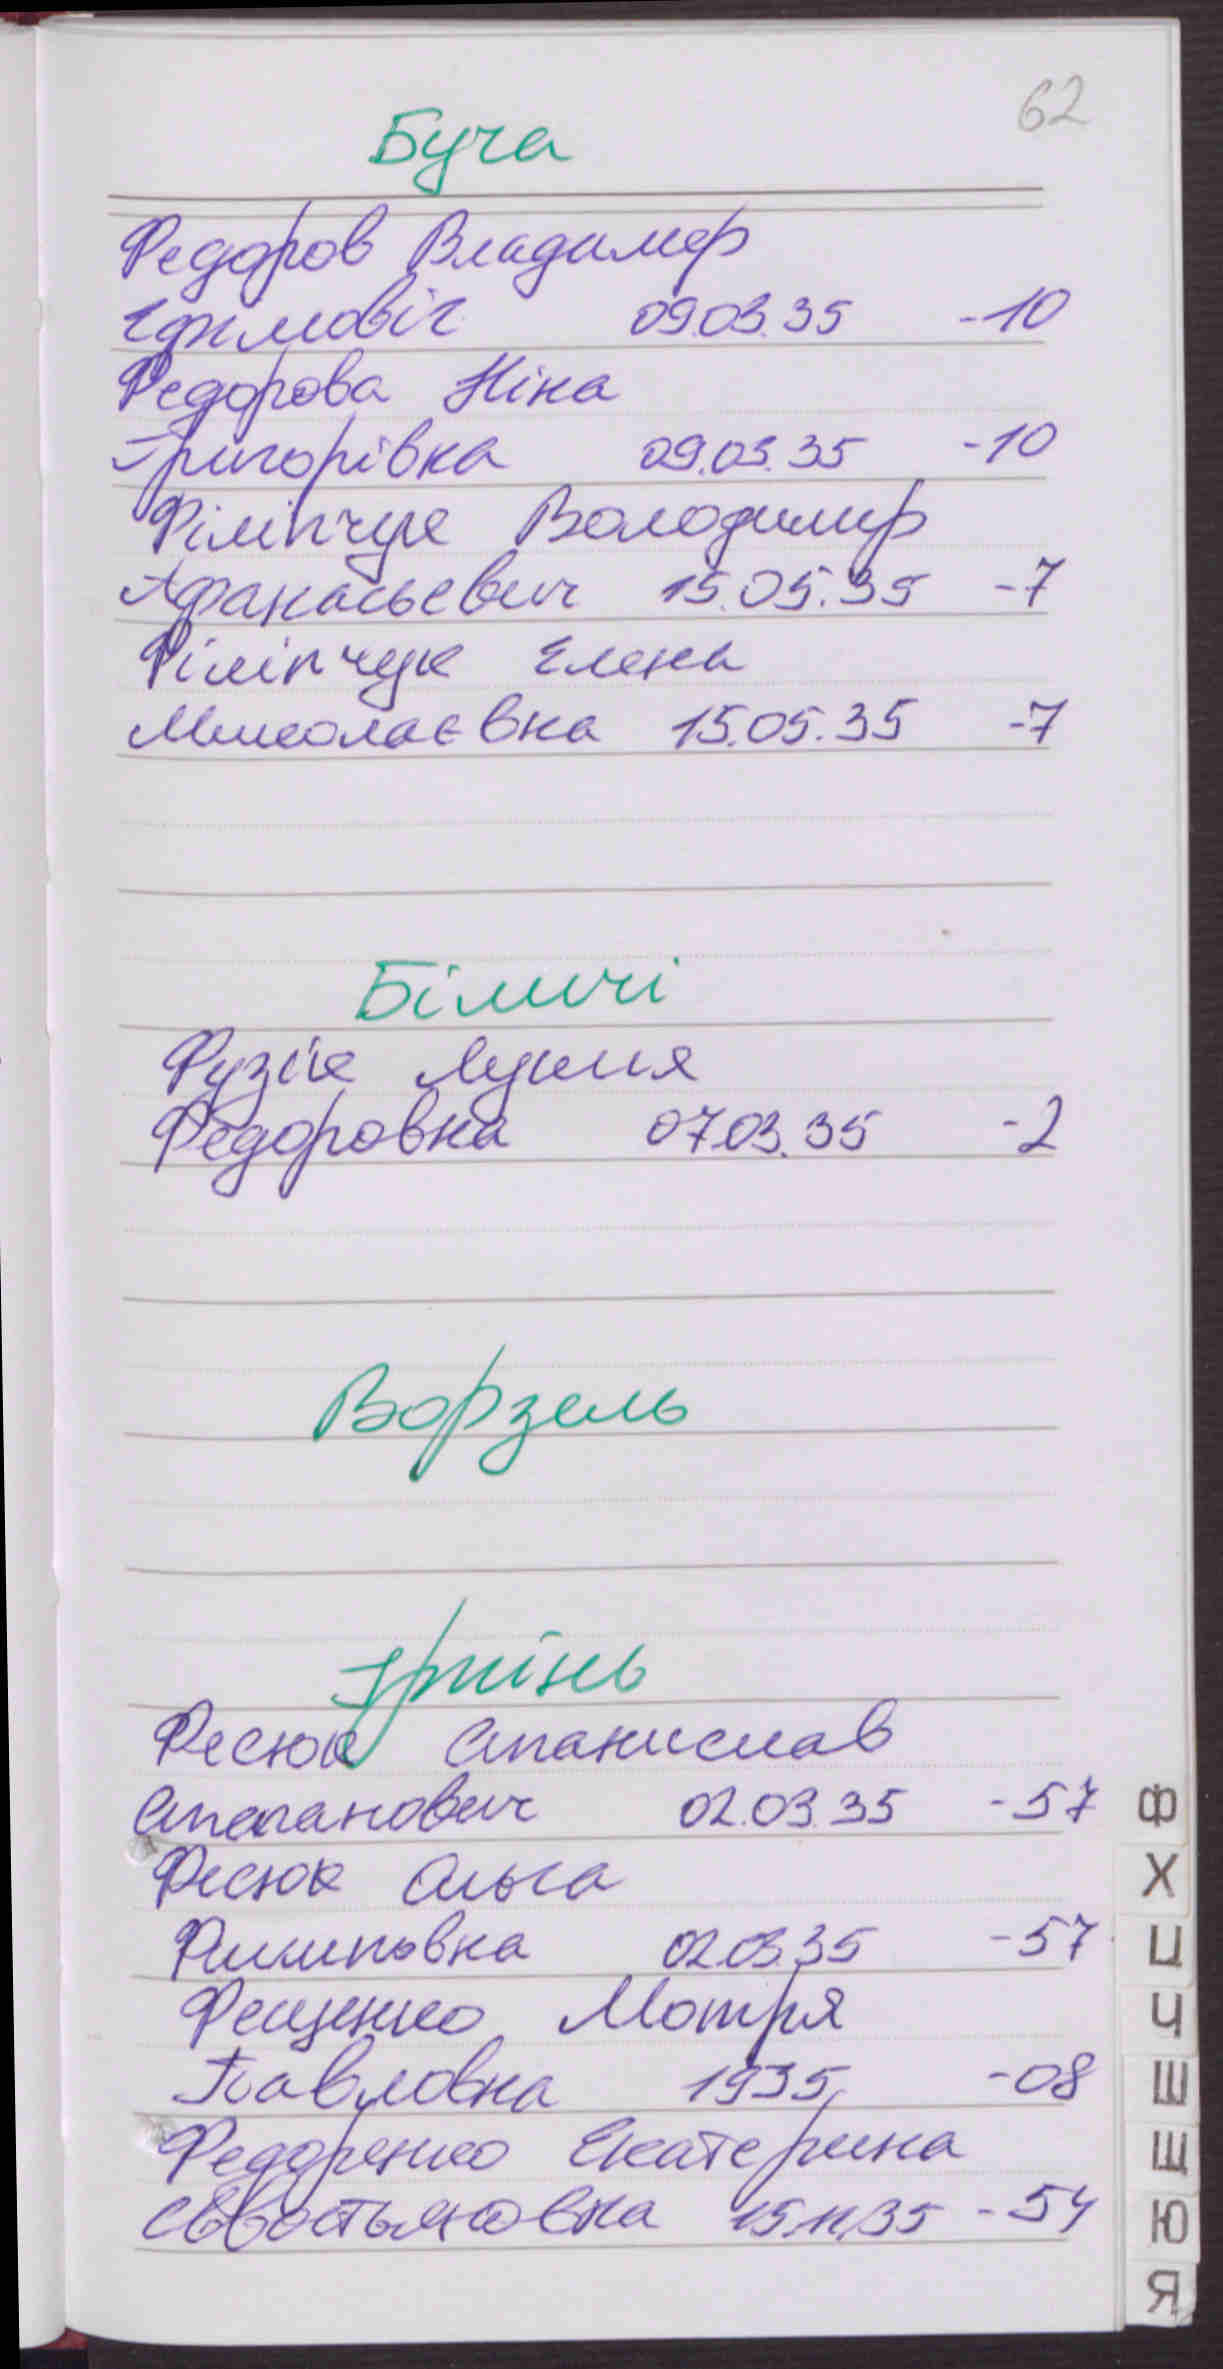 62
Буча
Федоров Владимер
Єфимовіч 09.03.35 -10
Федорова Ніна
Григорівна 09.03.35 -10
Філіпчук Володимир
Афанасьевич 15.05.35 -7
Філіпчук Елена
Миколаєвна 15.05.35 -7
Біличі
Фузік
Федоровна 07.03.35 -2
Ворзель
Ірпінь
Фесюк Станислав
Степанович 02.03.35 -57
Фесюк Ольга
Филиповна 02.03.35 -57
Фещенко Мотря
Павловна 1935 -08
Федоренко Екатерина
15.11.35 -54
Ф
Х
Ц
Ч
Ш
Щ
Ю
Я